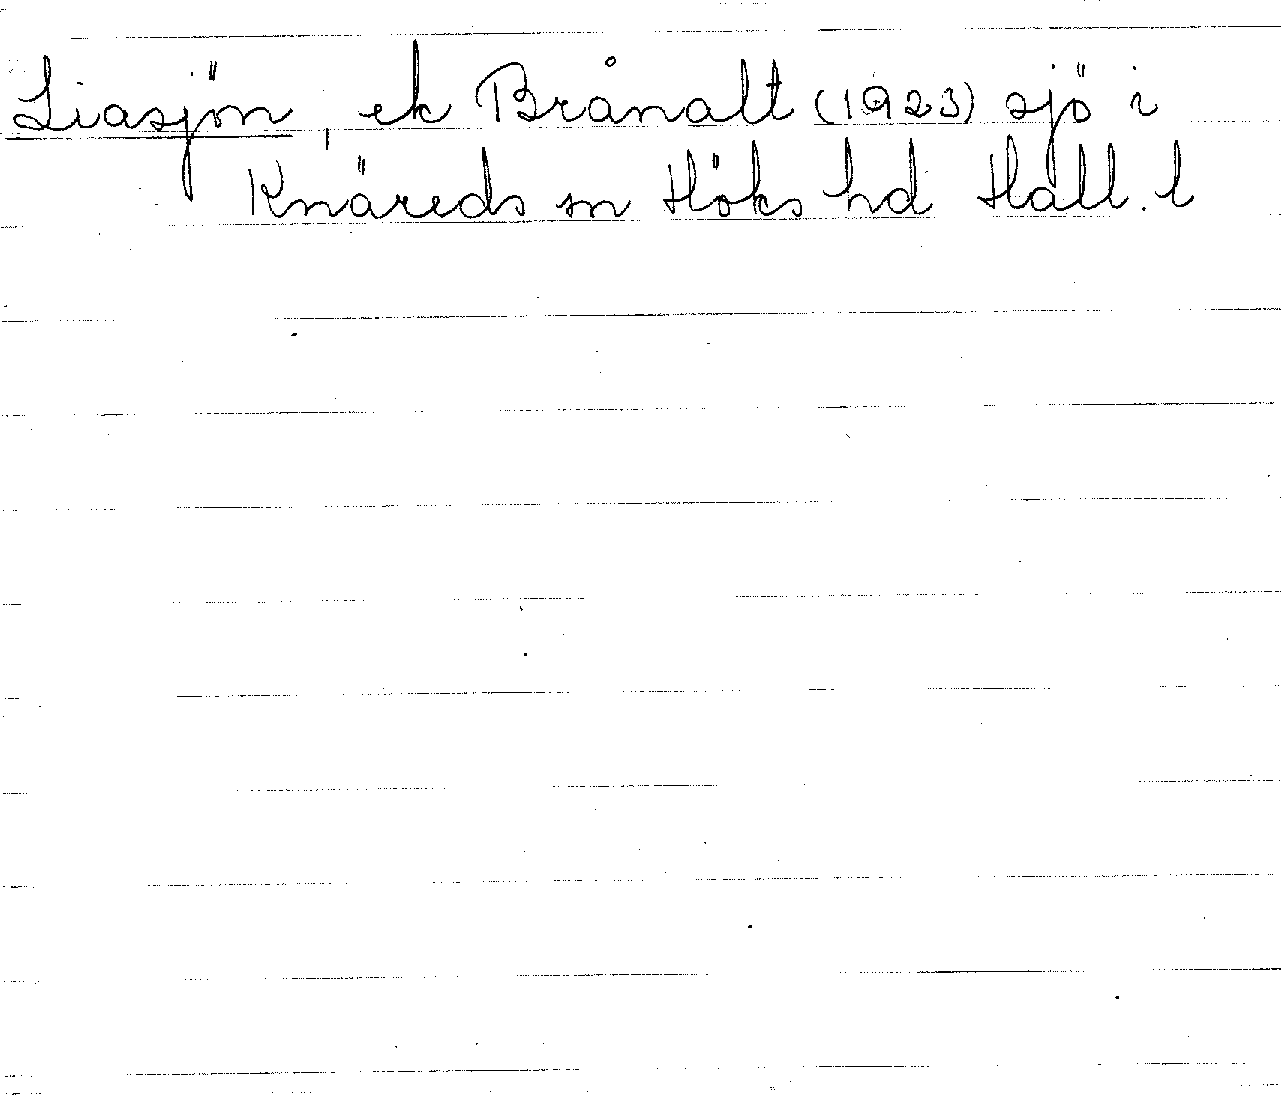 Liasjön, ek Brånalt (1923) sjö i
Knäreds sn Höks hd Hall. l